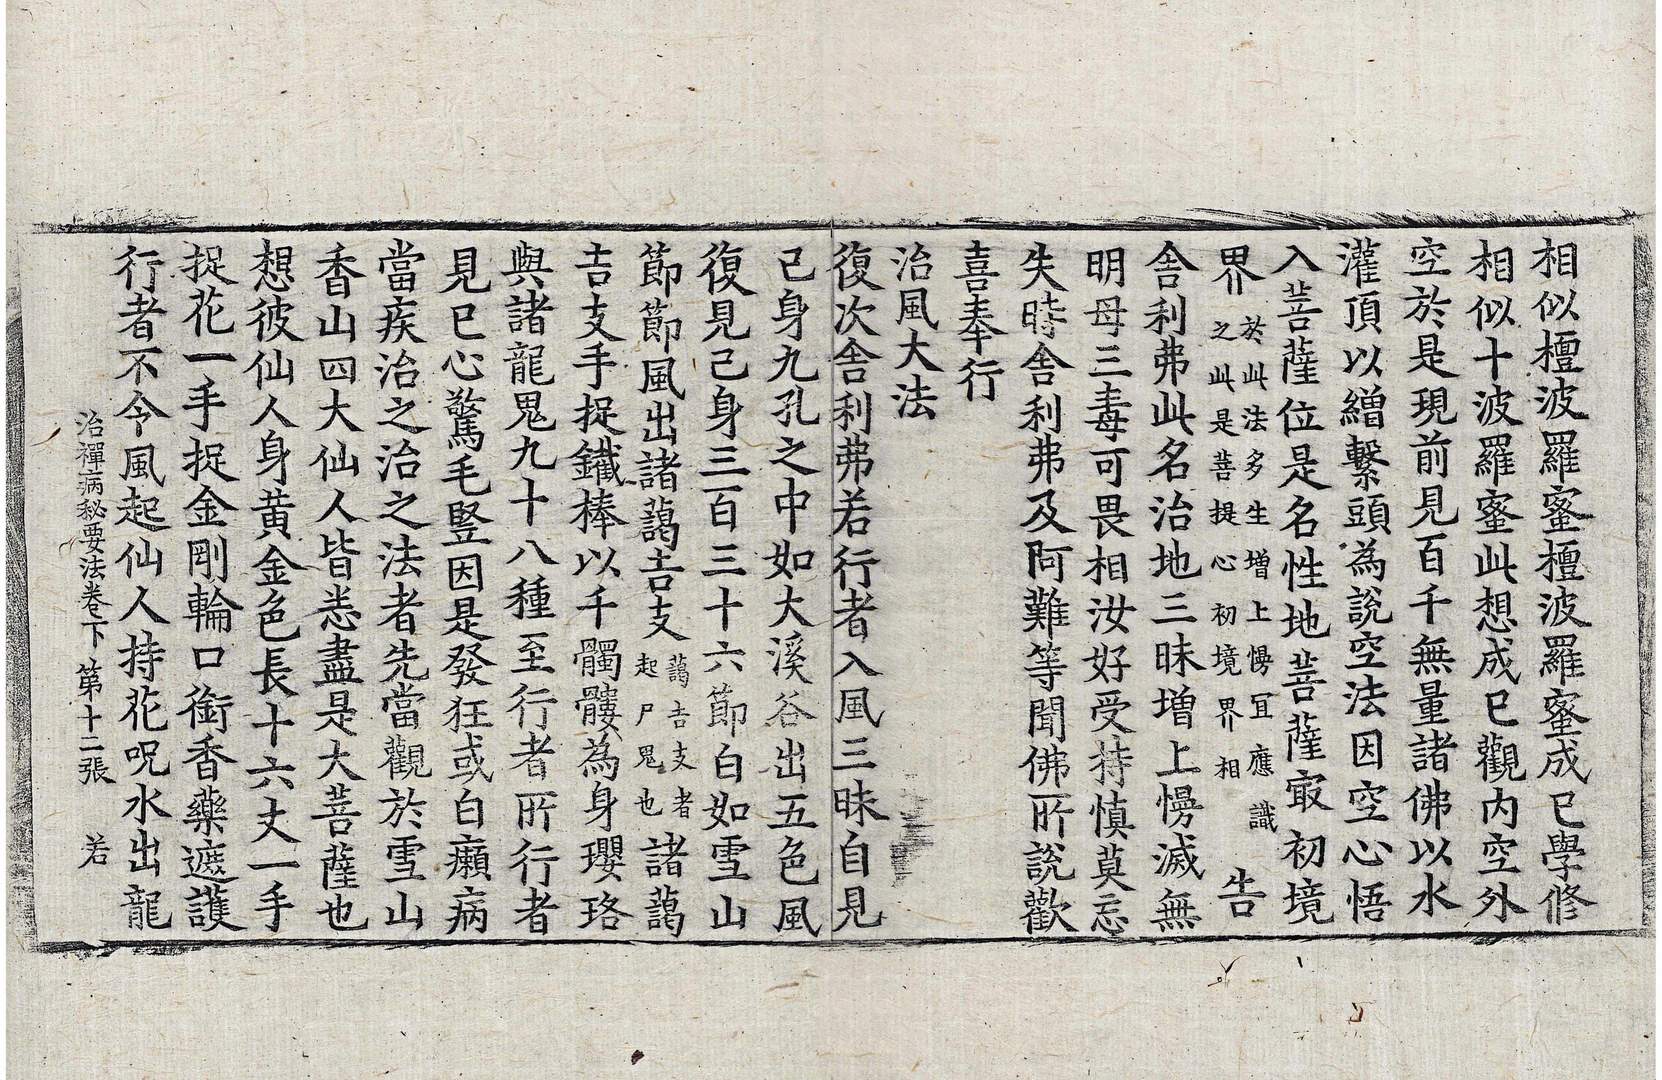 相似檀波羅蜜檀波羅蜜成已學修
相似十波羅蜜此想成已觀内空外
空於是現前見百千無量諸佛以水
灌頂以繒繫頭為說空法因空心悟
入菩薩位是名性地菩薩㝡初境
界於此法多生增上慢冝應識之此是菩提心初境界相告
舎利弗此名治地三昧增上慢滅無
明母三毒可畏相汝好受持慎莫忘
失時舎利弗及阿難等聞佛所說歡
喜奉行
治風大法
復次舎利弗若行者入風三昧自見
己身九孔之中如大溪谷出五色風
復見己身三百三十六節白如雪山
節節風出諸藹吉支藹吉支者起尸鬼也諸藹
吉支手捉鐵棒以千髑髏為身瓔珞
與諸龍鬼九十八種至行者所行者
見已心驚毛竪因是發狂或白癩病
當疾治之治之法者先當觀於雪山
香山四大仙人皆悉盡是大菩薩也
想彼仙人身黄金色長十六丈一手
捉花一手捉金剛輪口銜香藥遮護
行者不令風起仙人持花呪水出龍
治禪病秘要法卷下 第十二張 若